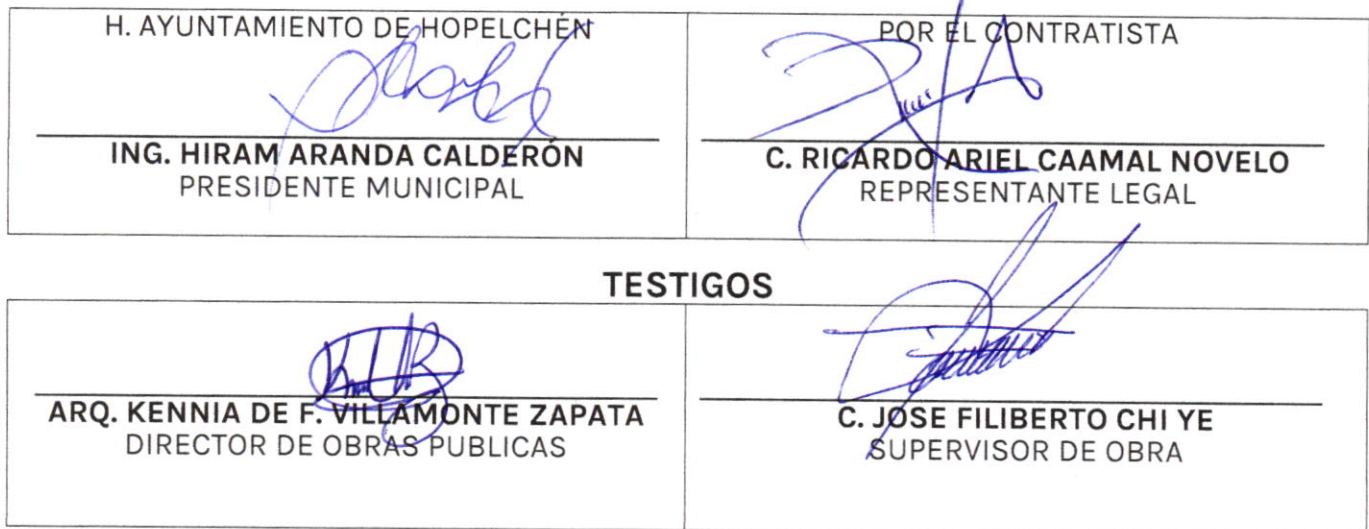 H. AYUNTAMIENTO DE HOPELCHÉN
ING. HIRAM ARANDA CALDERÓN
PRESIDENTE MUNICIPAL
POR EL CONTRATISTA
C. RICARDO ARIEL CAAMAL NOVELO
REPRESENTANTE LEGAL
TESTIGOS
ARQ. KENNIA DE F. VILLAMONTE ZAPATA
DIRECTOR DE OBRAS PUBLICAS
C. JOSE FILIBERTO CHI YE
SUPERVISOR DE OBRA